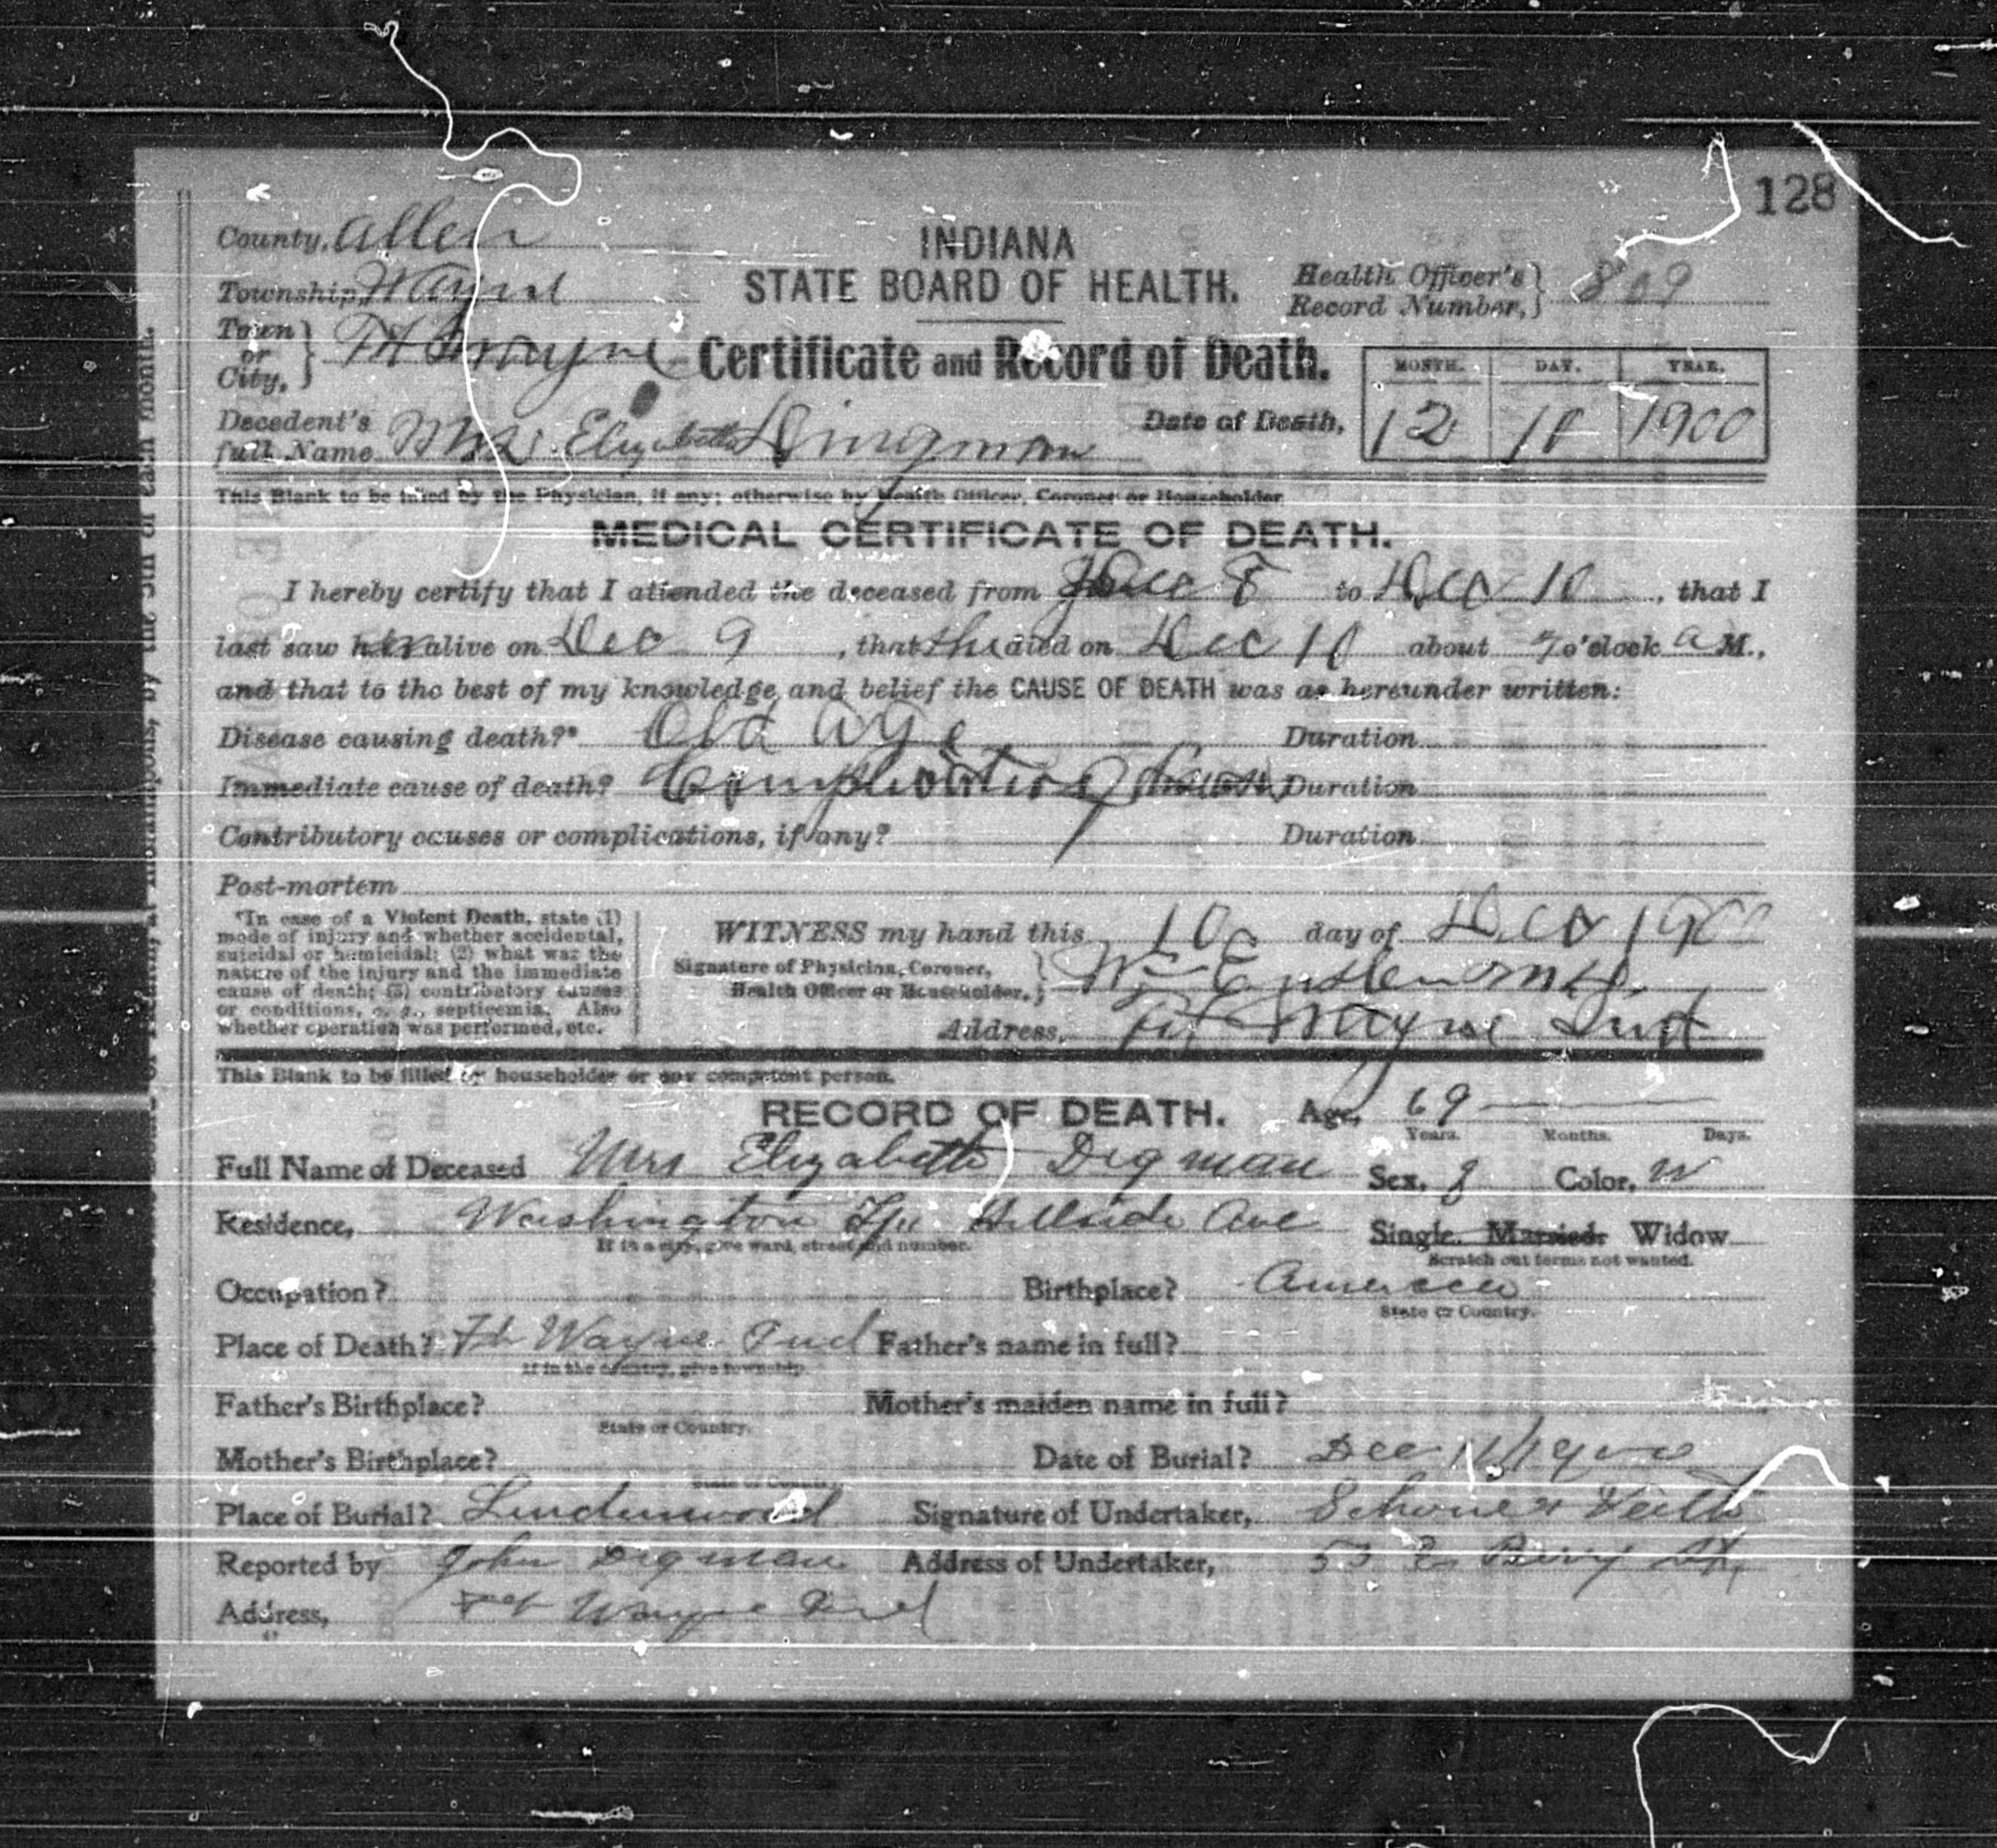 128
County, Allen
Township, Wayne
Town or City, Ft Wayne
INDIANA
STATE BOARD OF HEALTH.
Health Officer's Record Number, 809
Certificate and Record of Death.
MONTH. DAY. YEAR.
Decedent's full Name Mrs. Elizabeth Dingman
Date of Death, 12 10 1900
This Blank to be filled by the Physician, if any; otherwise by Health Officer, Coroner or Householder
MEDICAL CERTIFICATE OF DEATH.
I hereby certify that I attended the deceased from Dec 8 to Dec 10, that I
last saw her alive on Dec 9, that she died on Dec 10 about 7 o'clock a M.,
and that to the best of my knowledge and belief the CAUSE OF DEATH was as hereunder written:
Disease causing death?* Old Age Duration
Immediate cause of death? Duration
Contributory causes or complications, if any? Duration
Post-mortem
*In case of a Violent Death, state (1)
mode of injury and whether accidental,
suicidal or homicidal; (2) what was the
nature of the injury and the immediate
cause of death; (3) contributory causes
or conditions, e. g., septicemia. Also
whether operation was performed, etc.
WITNESS my hand this 10 day of Dec 1900
Signature of Physician, Coroner, Health Officer or Householder, Wm M.D.
Address, Ft Wayne Ind
This Blank to be filled by householder or any competent person.
RECORD OF DEATH. Age, 69
Years. Months. Days.
Full Name of Deceased Mrs Elizabeth Digman Sex, f Color, W
Residence, Washington Tp. Hillside Ave Single. Married. Widow
If in a city, give ward, street and number.
Scratch out terms not wanted.
Occupation? Birthplace? America
State or Country.
Place of Death? Ft Wayne Ind Father's name in full?
If in the country, give township.
Father's Birthplace? Mother's maiden name in full?
State or Country.
Mother's Birthplace? Date of Burial? Dec 11/1900
State or Country
Place of Burial? Lindenwood Signature of Undertaker, Schone & Veith
Reported by John Digman Address of Undertaker, 53 E Berry St,
Address, Ft Wayne Ind